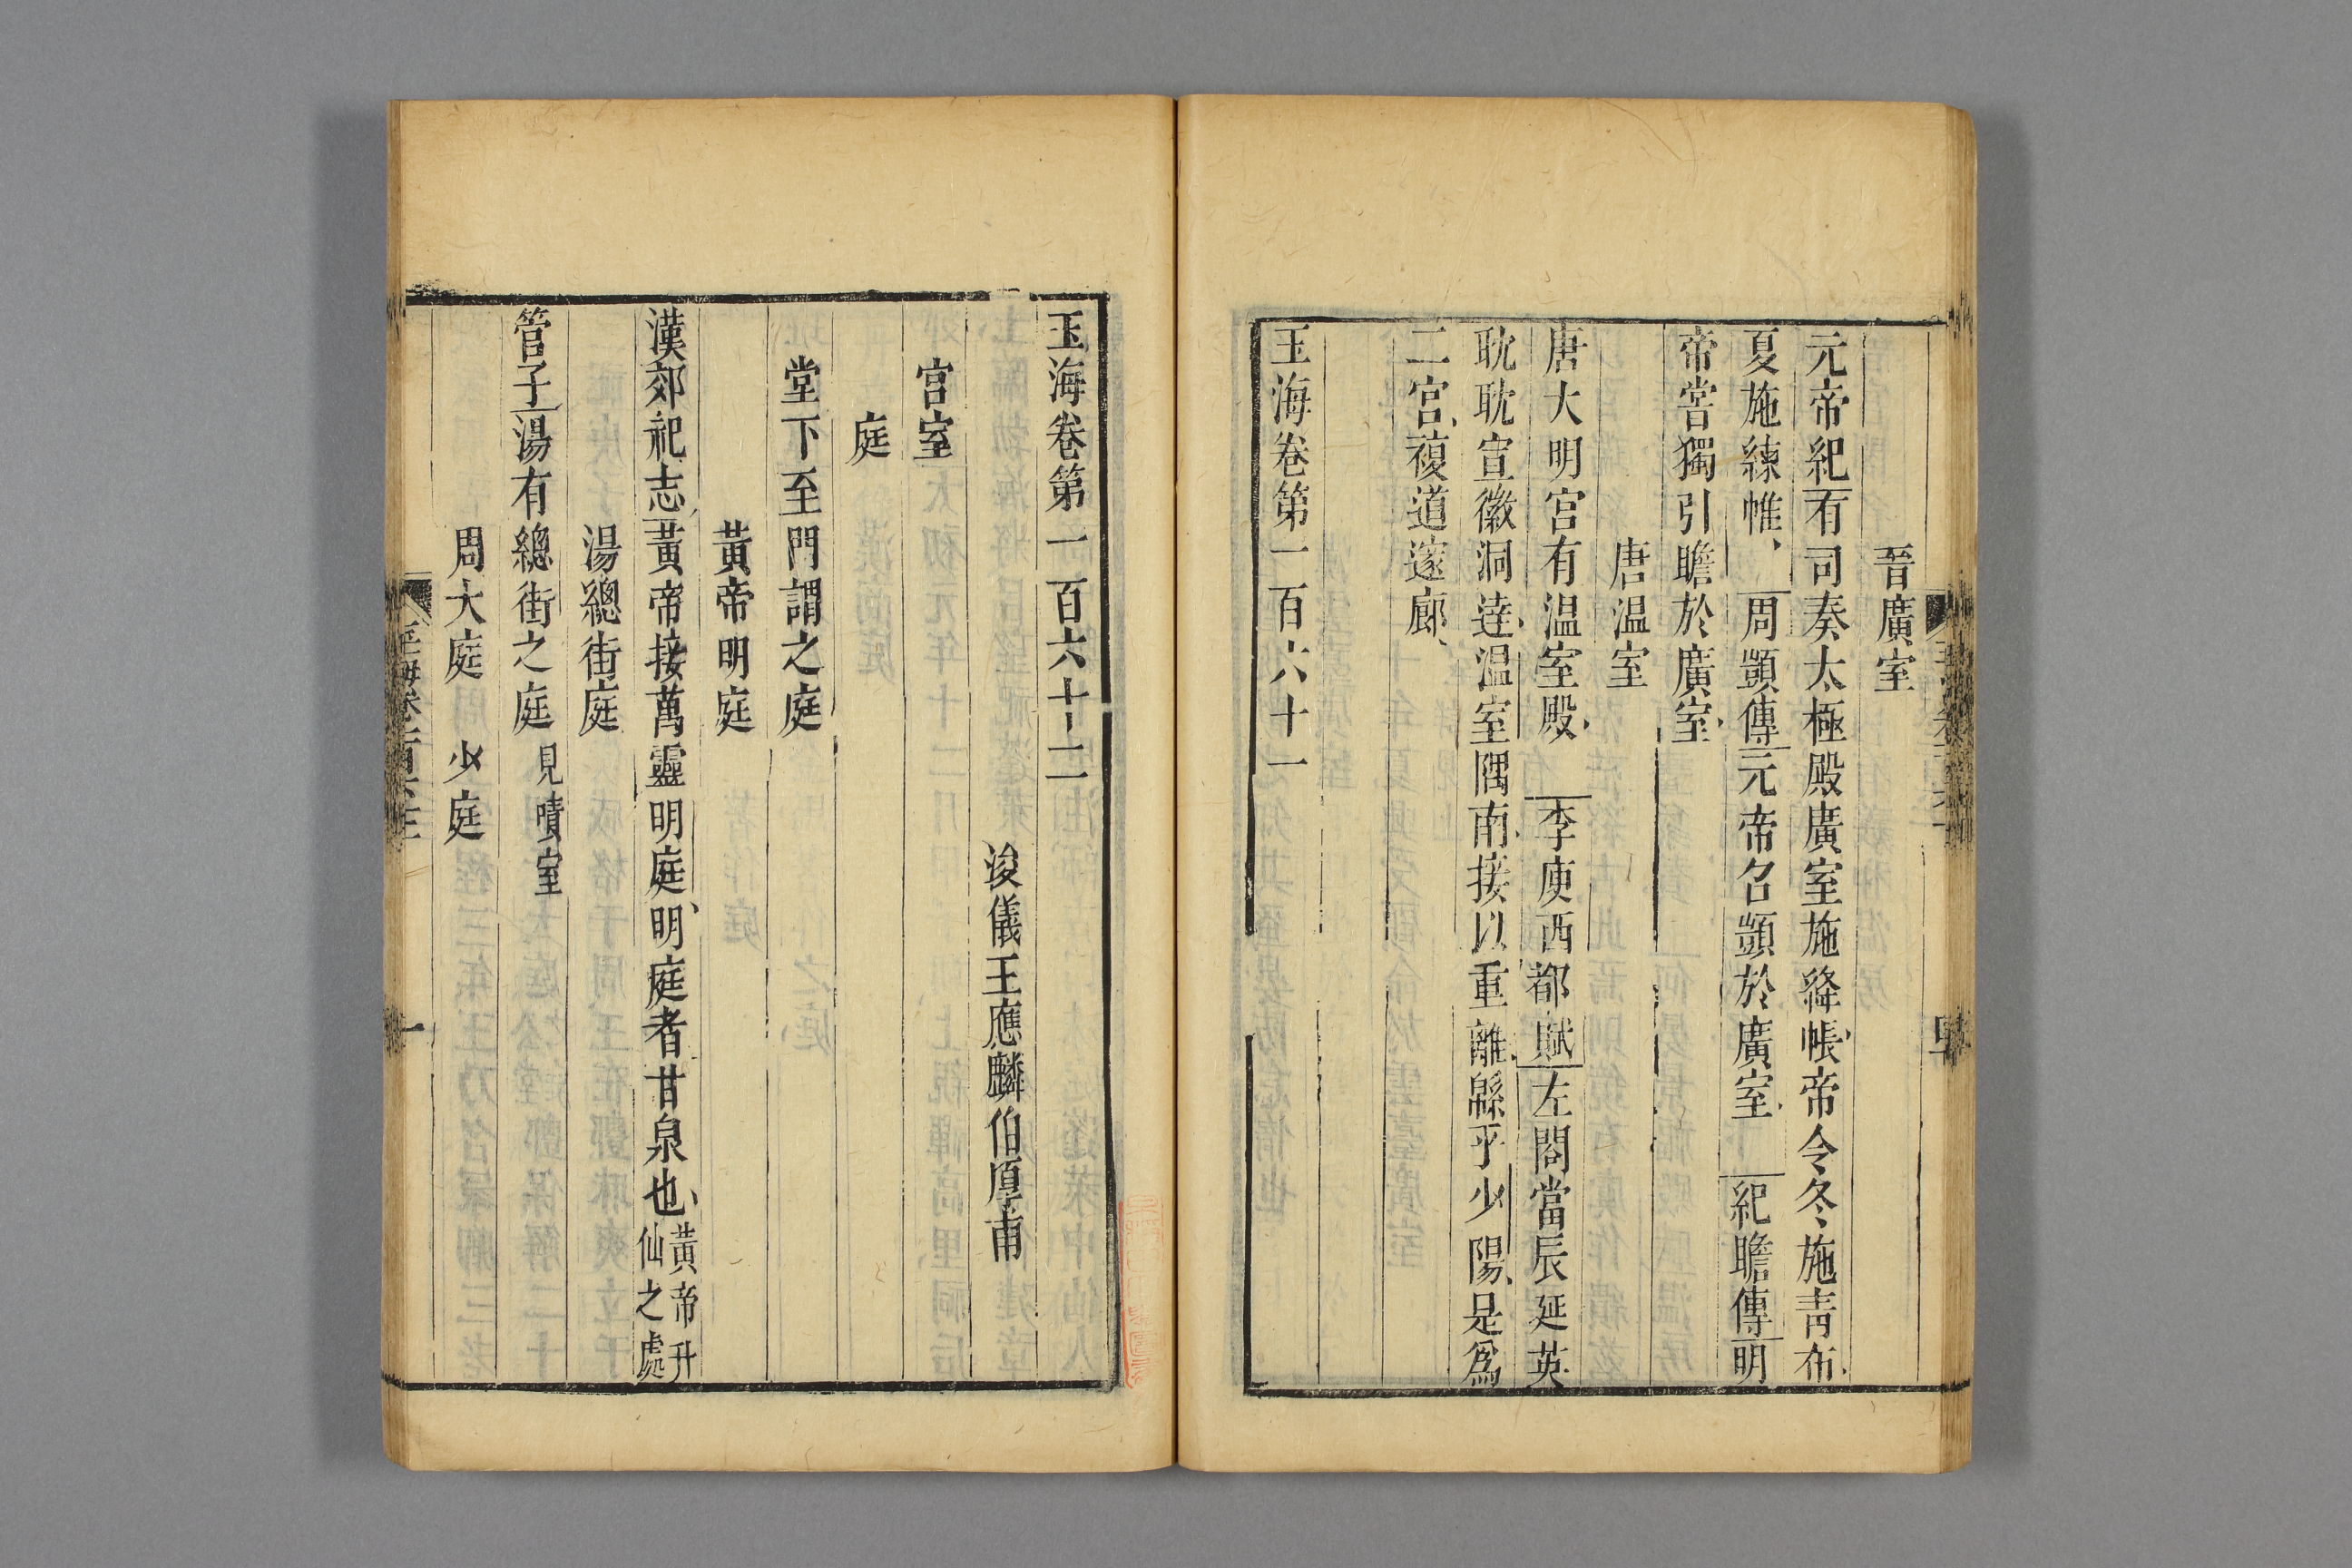 晉廣室
元帝紀有司奏太極殿廣室施絳帳帝令冬施靑布
夏施練帷、周顗傳元帝召顗於廣室、紀瞻傳明
帝嘗獨引瞻於廣室、
唐温室
唐大明宮有温室殿、李庾西都賦左閤當辰延英
耽耽宣徽洞達、温室隅南、接以重離、緜乎少陽、是爲
二宮、複道邃廊、
玉海卷第一百六十一
玉海卷第一百六十二
浚儀王應麟伯厚甫
宮室
庭
堂下至門謂之庭
黃帝明庭
漢郊祀志、黃帝接萬靈明庭、明庭者甘泉也、黃帝升仙之處
湯總街庭
管子湯有總街之庭見嘖室
周大庭 少庭